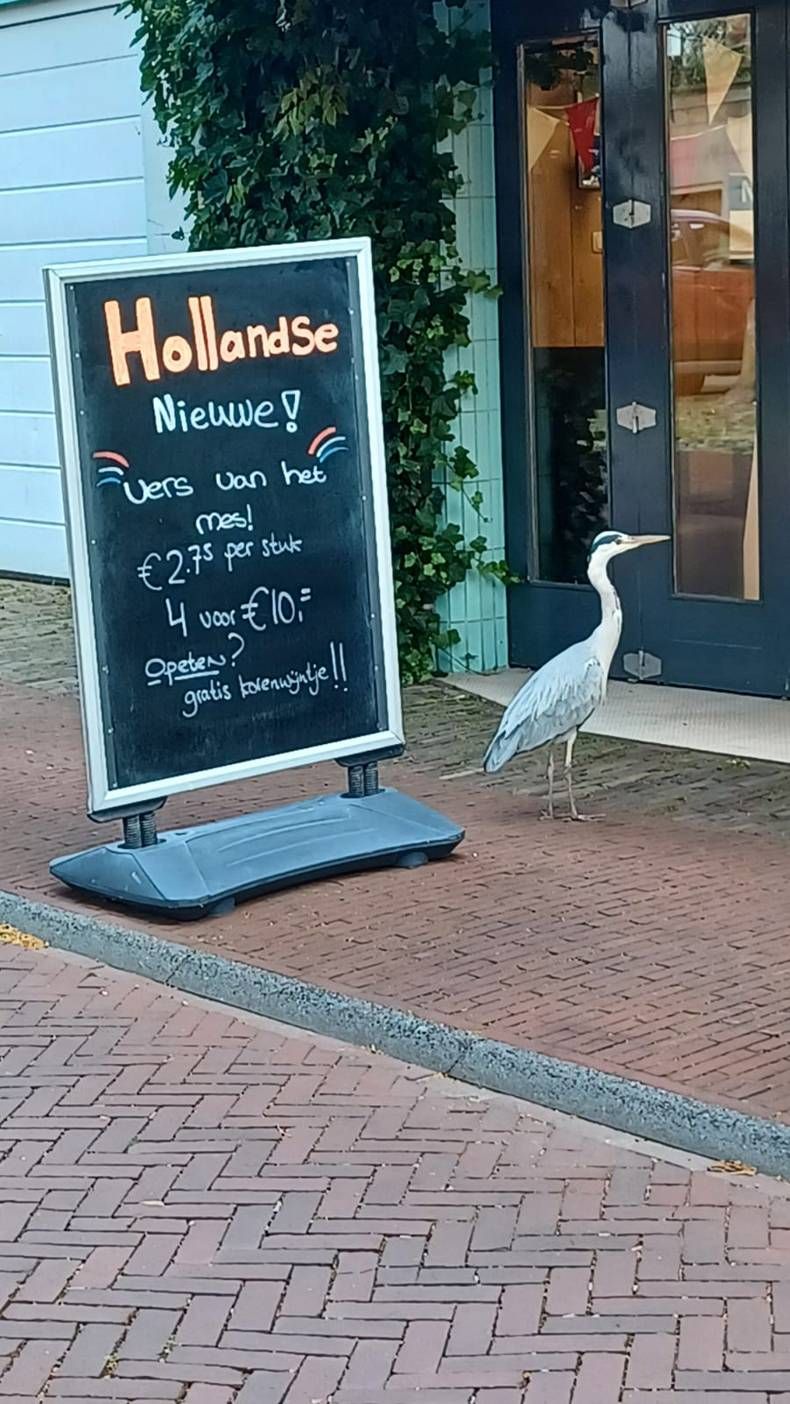 Hollandse
Nieuwe!
Vers van het
mes!
€2.75 per stuk
4 voor €10,=
Opeten?
gratis korenwijntje!!